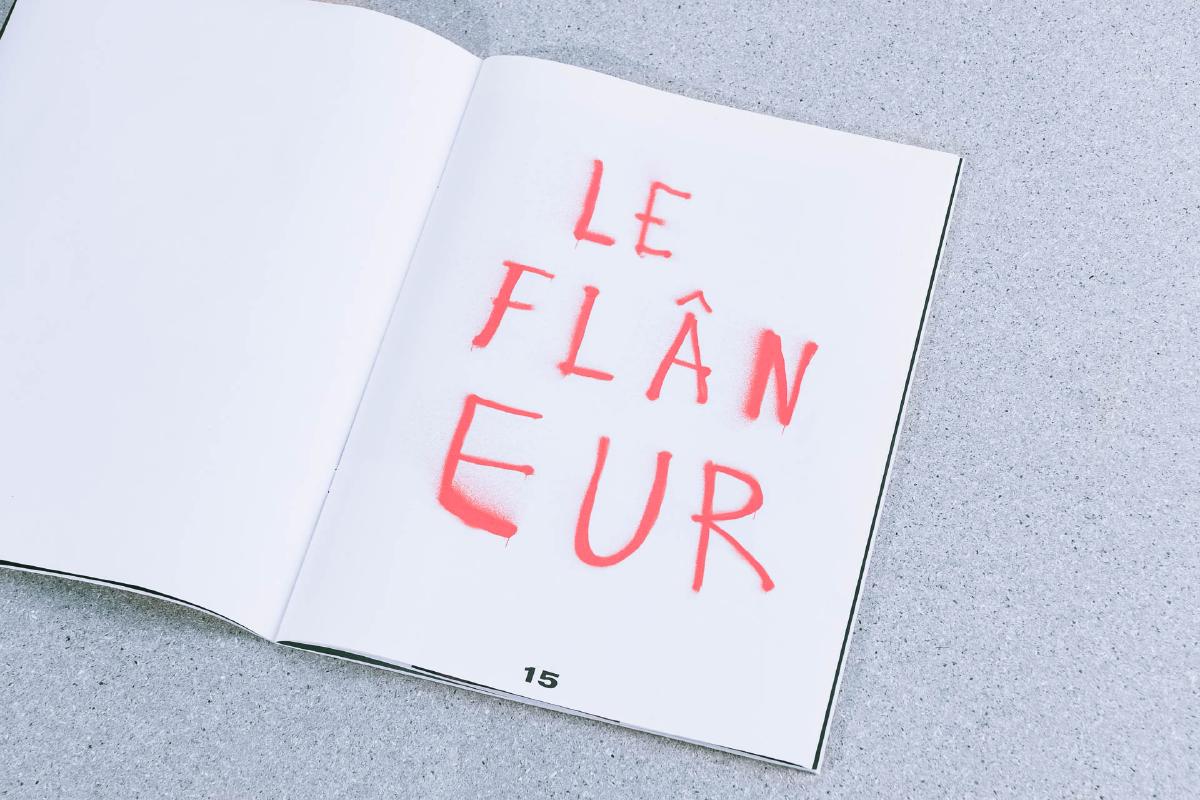 LE
FLÂN
EUR
15